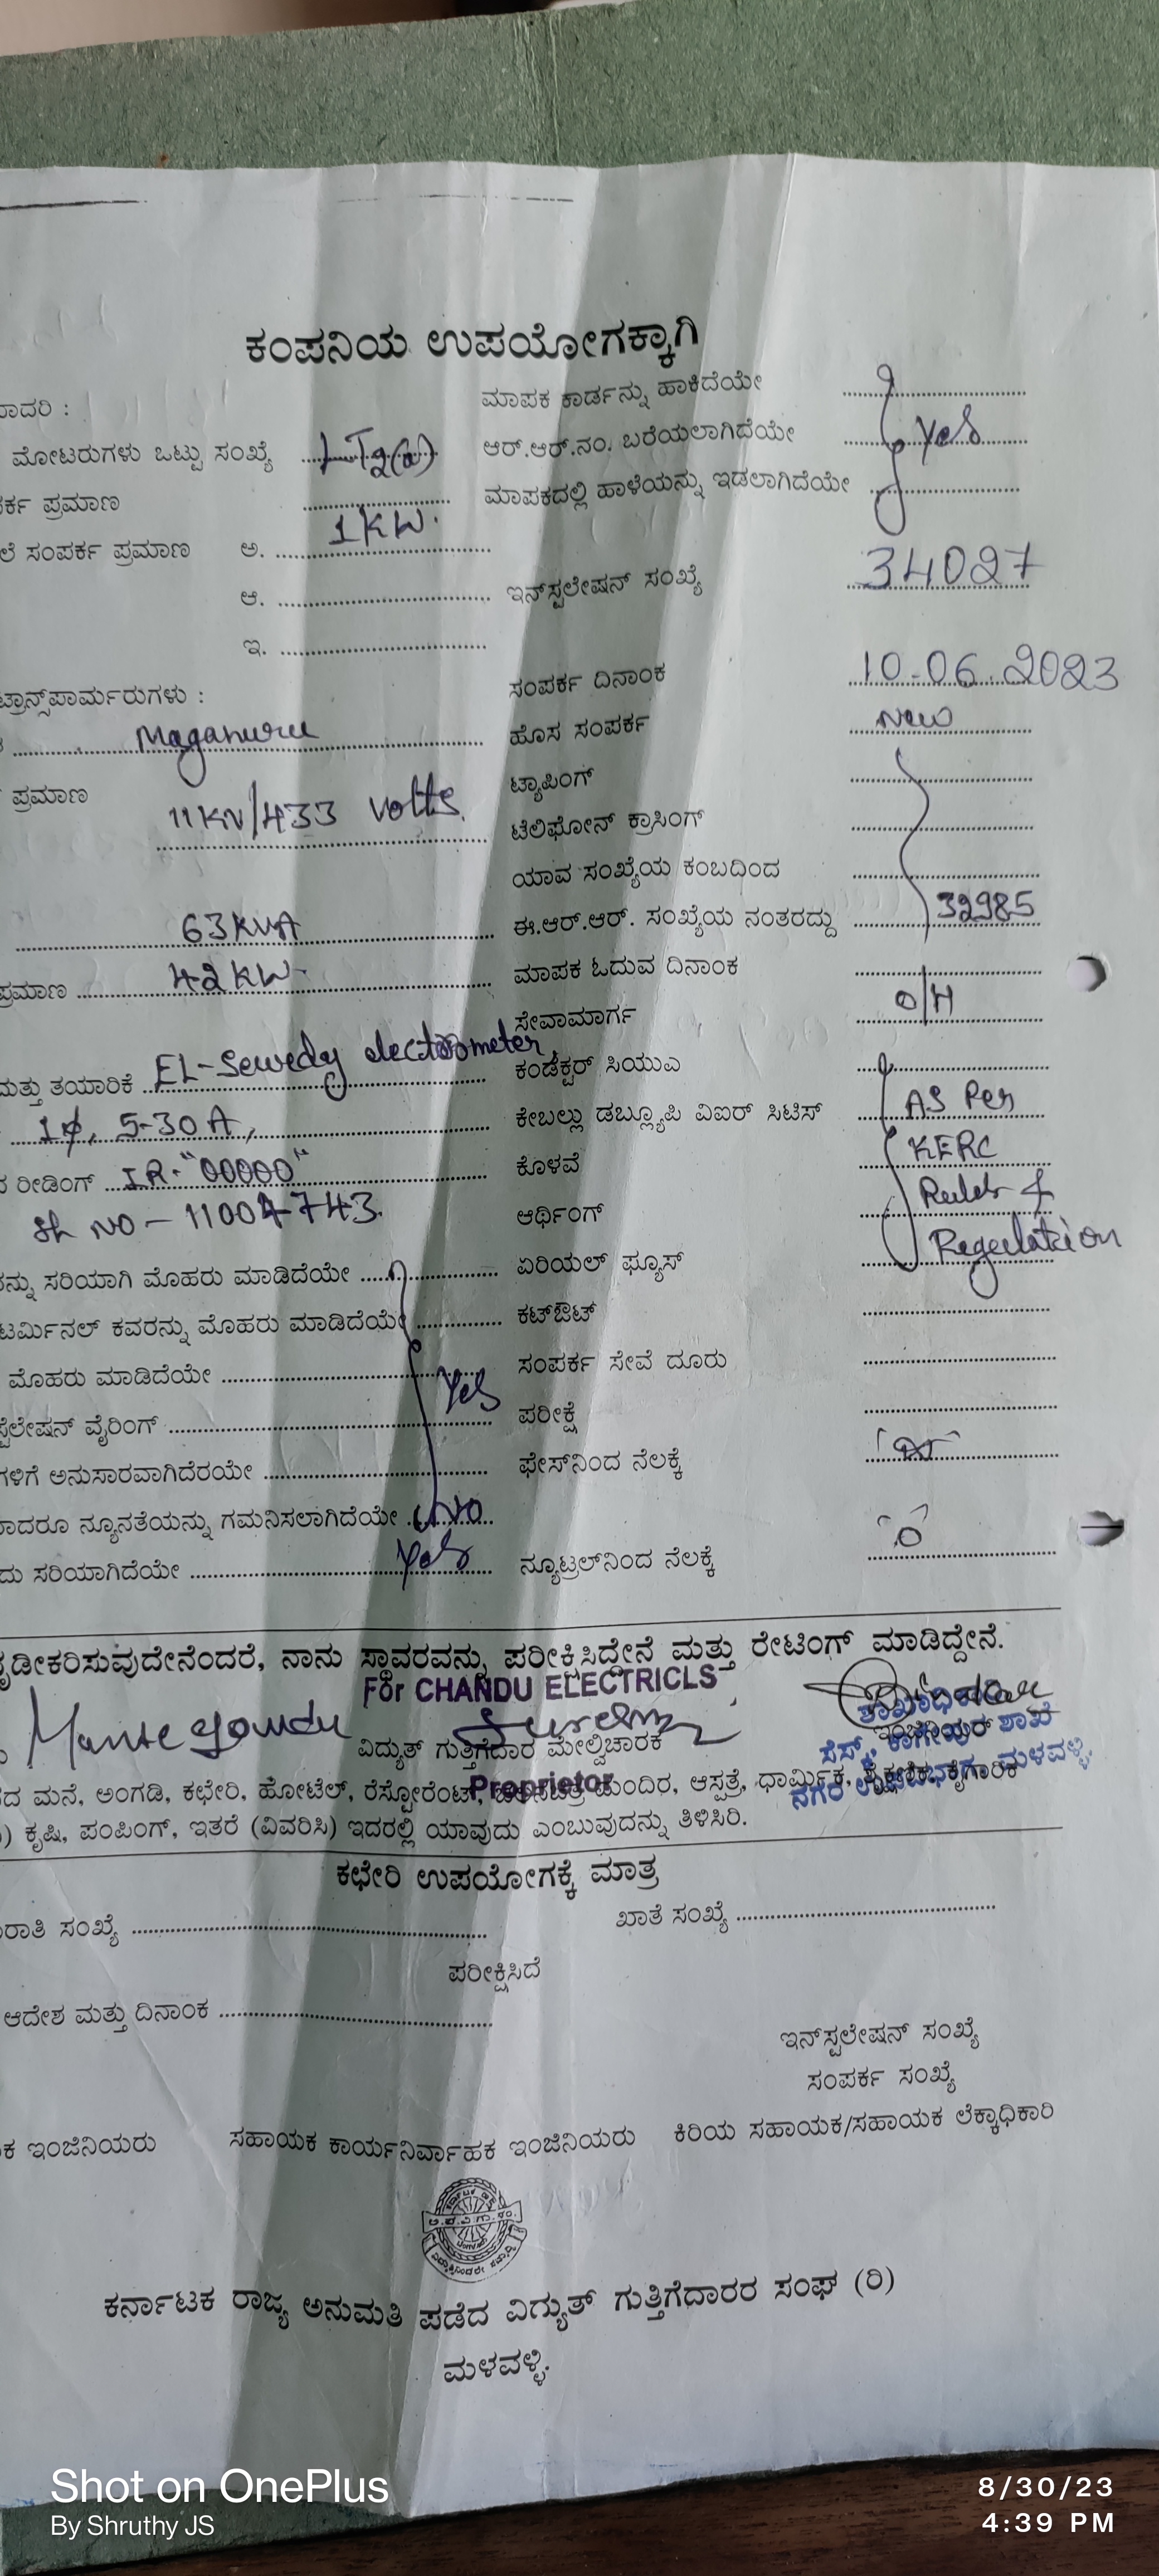 ಕಂಪನಿಯ ಉಪಯೋಗಕ್ಕಾಗಿ
ಾದರಿ :
ಮಾಪಕ ಕಾರ್ಡನ್ನು ಹಾಕಿದೆಯೇ
ಮೋಟರುಗಳು ಒಟ್ಟು ಸಂಖ್ಯೆ LT2(a) ಆರ್.ಆರ್.ನಂ. ಬರೆಯಲಾಗಿದೆಯೇ Yes
ರ್ಕ ಪ್ರಮಾಣ ಮಾಪಕದಲ್ಲಿ ಹಾಳೆಯನ್ನು ಇಡಲಾಗಿದೆಯೇ
ಲೆ ಸಂಪರ್ಕ ಪ್ರಮಾಣ ಅ. 1KW.
ಆ. ಇನ್‌ಸ್ಟಲೇಷನ್ ಸಂಖ್ಯೆ 34027
ಇ.
ಟ್ರಾನ್ಸ್‌ಪಾರ್ಮರುಗಳು : ಸಂಪರ್ಕ ದಿನಾಂಕ 10-06.2023
Maganuru ಹೊಸ ಸಂಪರ್ಕ New
ಪ್ರಮಾಣ 11KV/433 volts. ಟ್ಯಾಪಿಂಗ್
ಟೆಲಿಫೋನ್ ಕ್ರಾಸಿಂಗ್
ಯಾವ ಸಂಖ್ಯೆಯ ಕಂಬದಿಂದ
63KVA ಈ.ಆರ್.ಆರ್. ಸಂಖ್ಯೆಯ ನಂತರದ್ದು 32985
ಪ್ರಮಾಣ 42KW. ಮಾಪಕ ಓದುವ ದಿನಾಂಕ
ಸೇವಾಮಾರ್ಗ O/H
ಮತ್ತು ತಯಾರಿಕೆ EL-Sewedy electrometer, ಕಂಡಕ್ಟರ್ ಸಿಯುಎ
1ϕ, 5-30A, ಕೇಬಲ್ಲು ಡಬ್ಲ್ಯೂಪಿ ವಿಐರ್ ಸಿಟಿಸ್ AS Per
ರೀಡಿಂಗ್ IR-"00000" ಕೊಳವೆ KERC
Sl NO - 11004743. ಆರ್ಥಿಂಗ್ Rules &
ನ್ನು ಸರಿಯಾಗಿ ಮೊಹರು ಮಾಡಿದೆಯೇ ಏರಿಯಲ್ ಫ್ಯೂಸ್ Regulation
ಟರ್ಮಿನಲ್ ಕವರನ್ನು ಮೊಹರು ಮಾಡಿದೆಯೇ ಕಟ್‌ಔಟ್
ಮೊಹರು ಮಾಡಿದೆಯೇ Yes ಸಂಪರ್ಕ ಸೇವೆ ದೂರು
ಸ್ಟೆಲೇಷನ್ ವೈರಿಂಗ್ ಪರೀಕ್ಷೆ
ಗಳಿಗೆ ಅನುಸಾರವಾಗಿದೆರಯೇ ಫೇಸ್‌ನಿಂದ ನೆಲಕ್ಕೆ
ಾದರೂ ನ್ಯೂನತೆಯನ್ನು ಗಮನಿಸಲಾಗಿದೆಯೇ NO
ದು ಸರಿಯಾಗಿದೆಯೇ Yes ನ್ಯೂಟ್ರಲ್‌ನಿಂದ ನೆಲಕ್ಕೆ 0
ೃಡೀಕರಿಸುವುದೇನೆಂದರೆ, ನಾನು ಸ್ಥಾವರವನ್ನು ಪರೀಕ್ಷಿಸಿದ್ದೇನೆ ಮತ್ತು ರೇಟಿಂಗ್ ಮಾಡಿದ್ದೇನೆ.
For CHANDU ELECTRICLS
ಶಾಖಾಧಿಕಾರಿ
ವಿದ್ಯುತ್ ಗುತ್ತಿಗೆದಾರ ಮೇಲ್ವಿಚಾರಕ ಇಂಜಿನಿಯರ್ ಶಾಖೆ
Proprietor
ದ ಮನೆ, ಅಂಗಡಿ, ಕಛೇರಿ, ಹೋಟೆಲ್, ರೆಸ್ಟೋರೆಂಟ್, ಮಂದಿರ, ಆಸ್ಪತ್ರೆ, ಧಾರ್ಮಿಕ,
ಮಳವಳ್ಳಿ.
) ಕೃಷಿ, ಪಂಪಿಂಗ್, ಇತರೆ (ವಿವರಿಸಿ) ಇದರಲ್ಲಿ ಯಾವುದು ಎಂಬುವುದನ್ನು ತಿಳಿಸಿರಿ.
ಕಛೇರಿ ಉಪಯೋಗಕ್ಕೆ ಮಾತ್ರ
ರಾತಿ ಸಂಖ್ಯೆ ಖಾತೆ ಸಂಖ್ಯೆ
ಪರೀಕ್ಷಿಸಿದೆ
ಆದೇಶ ಮತ್ತು ದಿನಾಂಕ
ಇನ್‌ಸ್ಟಲೇಷನ್ ಸಂಖ್ಯೆ
ಸಂಪರ್ಕ ಸಂಖ್ಯೆ
ಕ ಇಂಜಿನಿಯರು ಸಹಾಯಕ ಕಾರ್ಯನಿರ್ವಾಹಕ ಇಂಜಿನಿಯರು ಕಿರಿಯ ಸಹಾಯಕ/ಸಹಾಯಕ ಲೆಕ್ಕಾಧಿಕಾರಿ
ಕರ್ನಾಟಕ ರಾಜ್ಯ ಅನುಮತಿ ಪಡೆದ ವಿಗ್ಯುತ್ ಗುತ್ತಿಗೆದಾರರ ಸಂಘ (ರಿ)
ಮಳವಳ್ಳಿ.
Shot on OnePlus
By Shruthy JS
8/30/23
4:39 PM